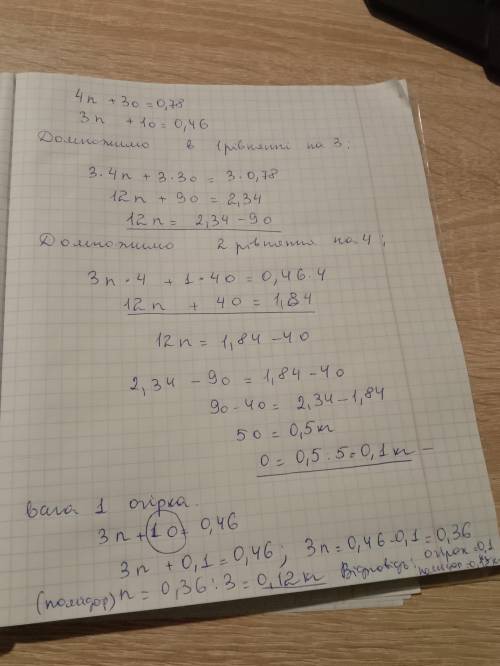 4п + 3о = 0,78
3п + 1о = 0,46
Домножимо в 1 рівнянні на 3;
3·4п + 3·3о = 3·0,78
12п + 9о = 2,34
12п = 2,34 - 9о
Домножимо 2 рівняння на 4;
3п·4 + 1·4о = 0,46·4
12п + 4о = 1,84
12п = 1,84 - 4о
2,34 - 9о = 1,84 - 4о
9о - 4о = 2,34 - 1,84
5о = 0,5 кг
о = 0,5 : 5 = 0,1 кг
вага 1 огірка.
3п + 1о = 0,46
3п + 0,1 = 0,46; 3п = 0,46 - 0,1 = 0,36
(помидор) п = 0,36 : 3 = 0,12 кг Відповідь: огірок = 0,1
помидор - 0,12 кг